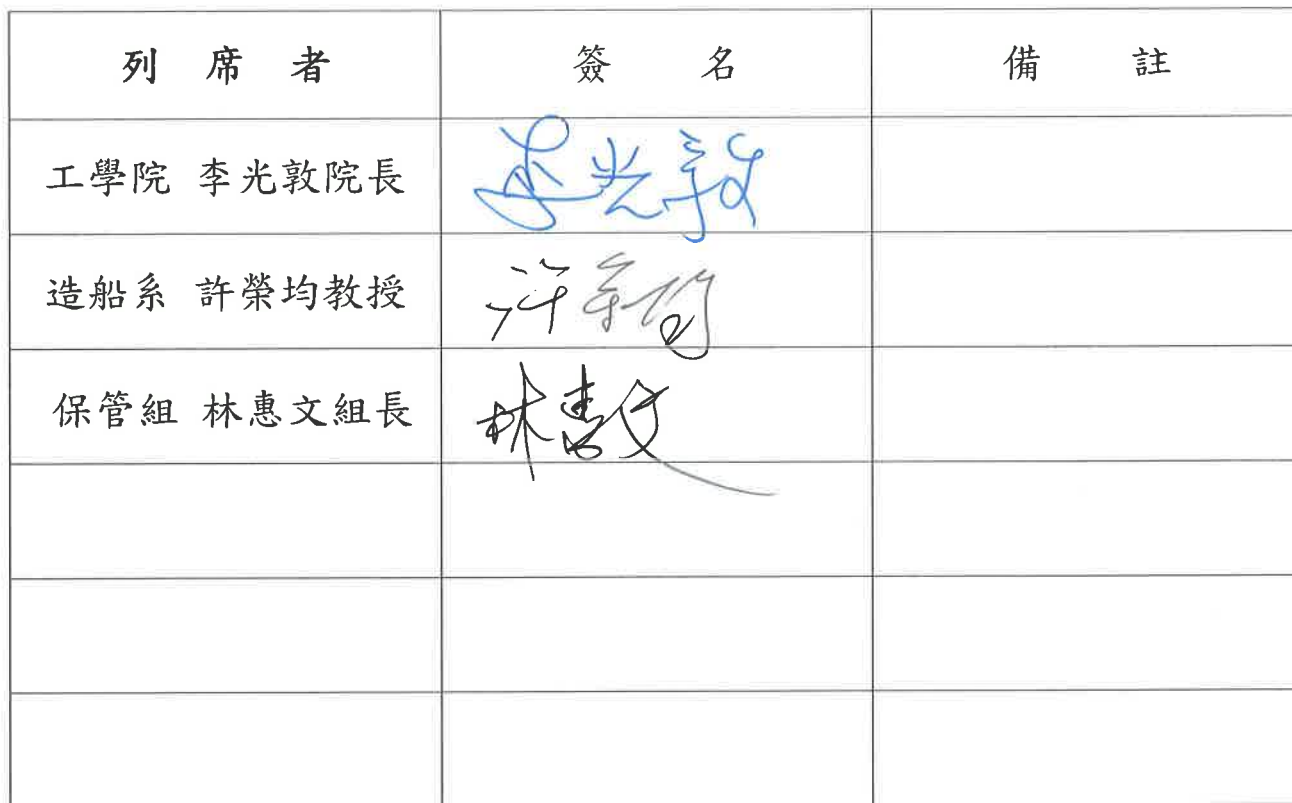 列席者 簽名 備註
工學院 李光敦院長 李光敦
造船系 許榮均教授 許榮均
保管組 林惠文組長 林惠文